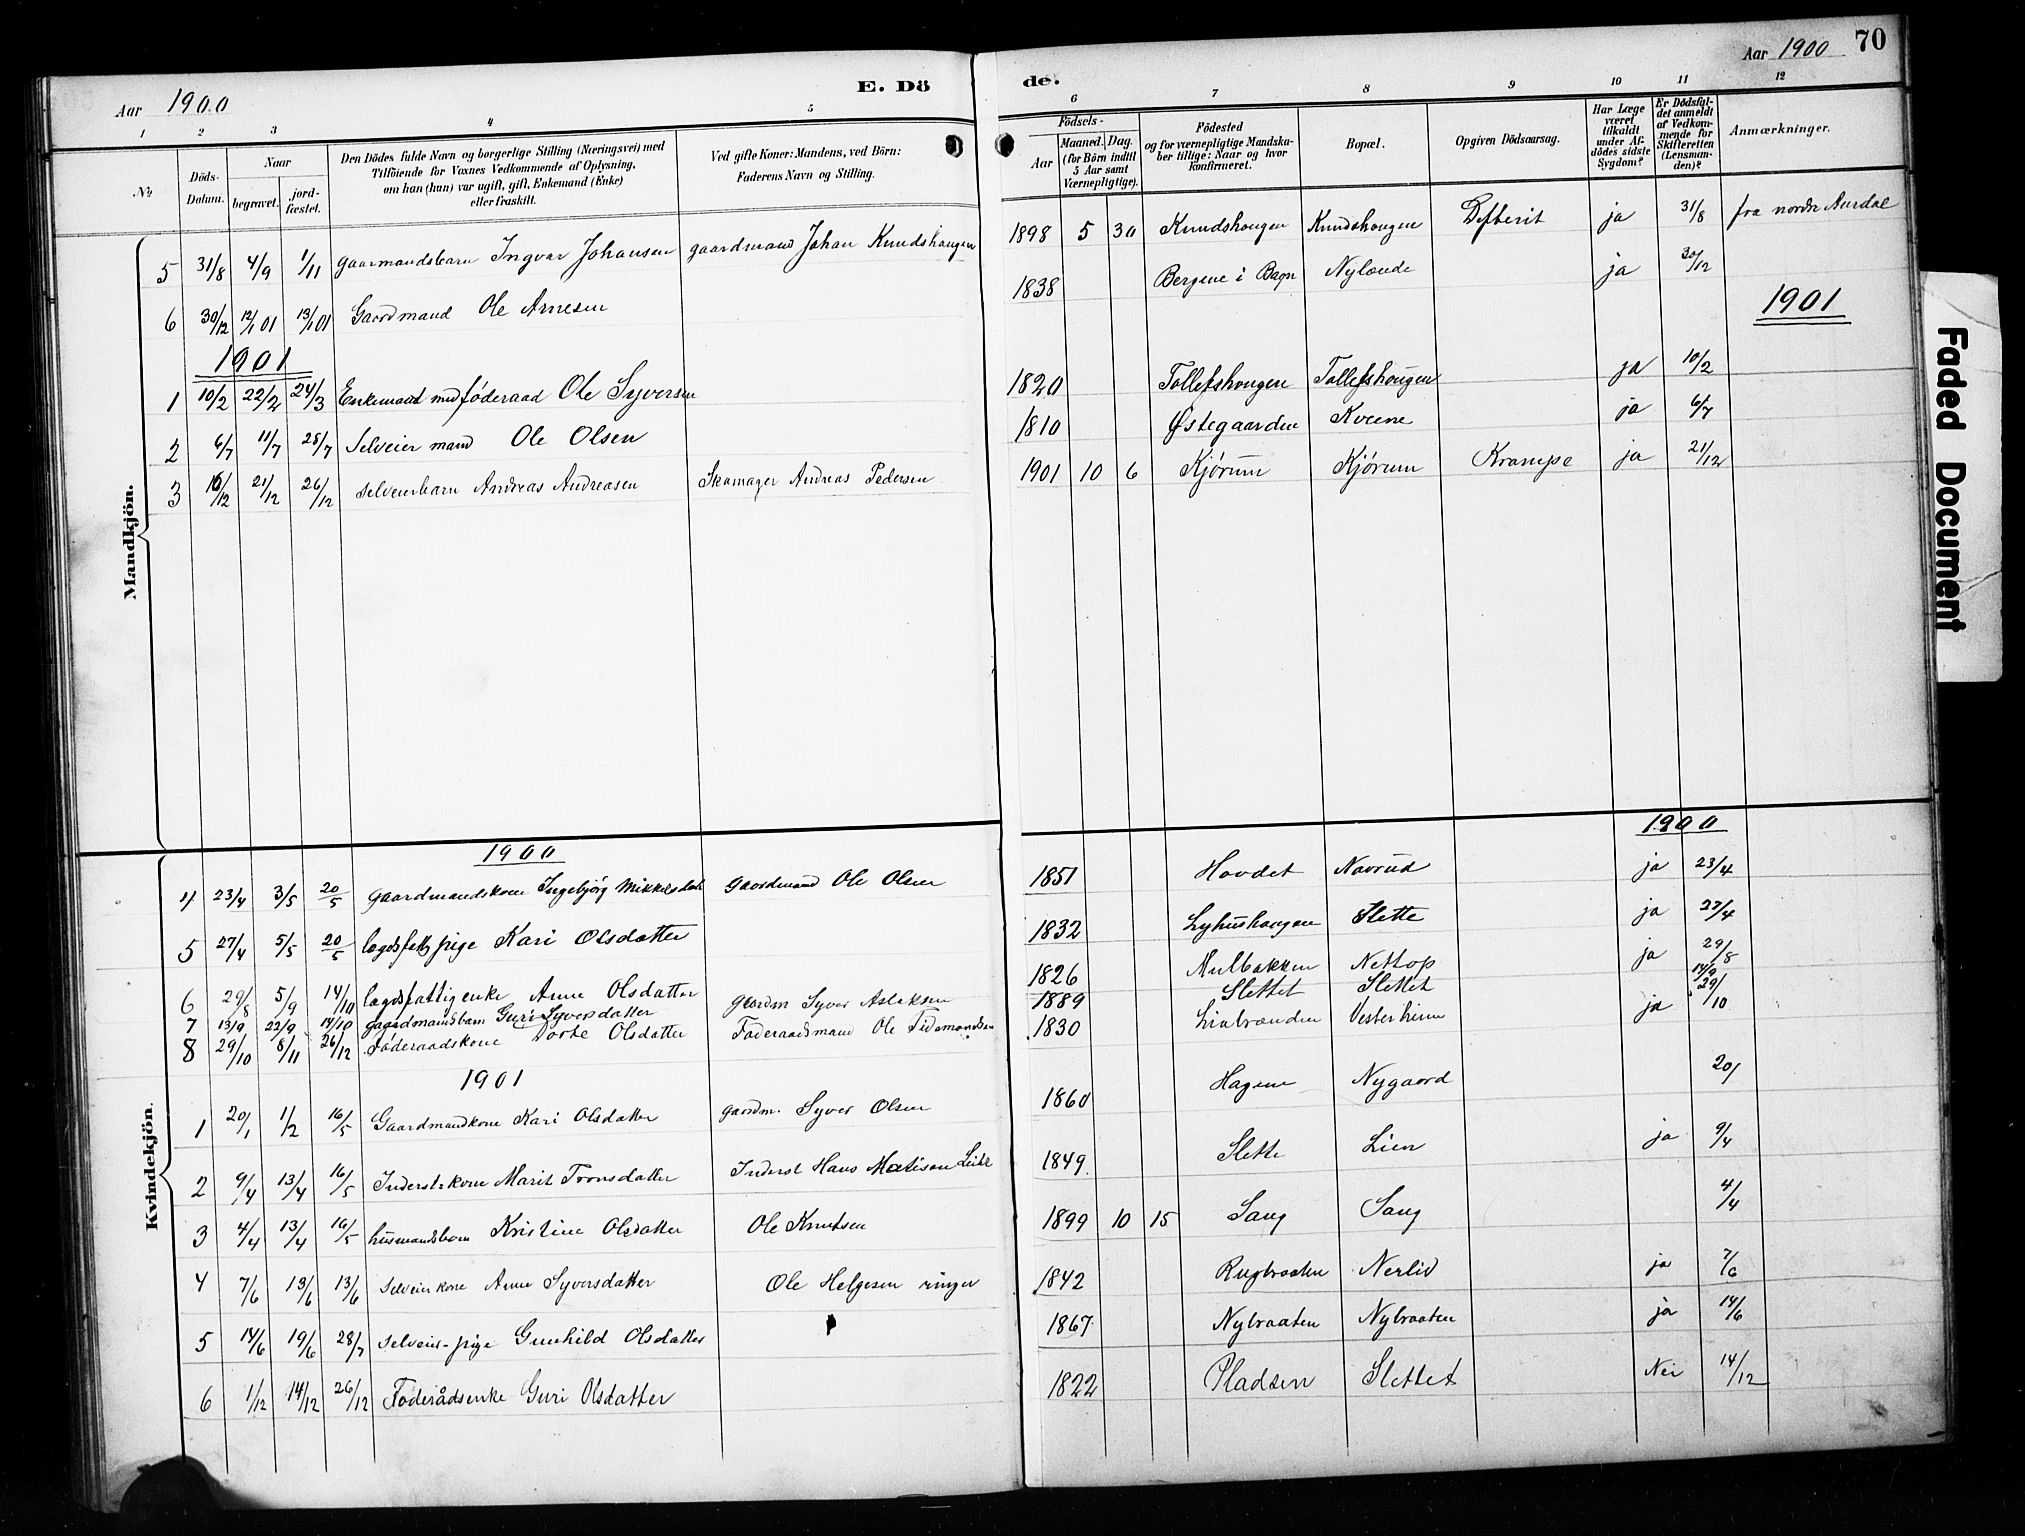 Aar 1900 E. Dö de. Aar 1900 70
1 2 3 4 5 6 7 8 9 10 11 12
No. Döds-Datum. Naar begravet. jord-fæstet. Den Dödes fulde Navn og borgerlige Stilling (Næringsvei) med Tilföiende for Voxnes Vedkommende af Oplysning, om han (hun) var ugift, gift, Enkemand (Enke) eller fraskilt. Ved gifte Koner: Mandens, ved Börn: Faderens Navn og Stilling. Födsels- Aar Maaned. Dag. (for Börn indtil 5 Aar samt Værnepligtige). Födested og for værnepligtige Mandskaber tillige: Naar og hvor konfirmeret. Bopæl. Opgiven Dödsaarsag. Har Læge været tilkaldt under Afdödes sidste Sygdom? Er Dödsfaldet anmeldt af Vedkommende for Skifteretten (Lensmanden)? Anmærkninger.
Mandkjön.
5 31/8 4/9 1/11 gaarmandsbarn Ingvar Johansen gaardmand Johan Knudshaugen 1898 5 30 Knudshougen Knudshougen Defterit ja 31/8 fra nordre Aurdal
6 30/12 12/1 01 13/1 01 Gaardmand Ole Arnesen 1838 Bergene i Bagn Nylænde ja 30/12
1901 1901
1 10/2 22/2 24/3 Enkemand med føderaad Ole Syversen 1820 Tollefshougen Tollefshougen ja 10/2
2 6/7 11/7 28/7 Selveier mand Ole Olsen 1810 Østegaarden Kveene ja 6/7
3 16/12 21/12 26/12 selveierbarn Andreas Andreasen Skomager Andreas Pedersen 1901 10 6 Kjørum Kjørum Krampe ja 21/12
Kvindekjön.
1900 1900
4 23/4 3/5 20/5 gaardmandskone Ingebjørg Mikkelsdatt Gaardmand Ole Olsen 1851 Hovdet Navrud ja 23/4
5 27/4 5/5 20/5 lægdsfattig pige Kari Olsdatter 1832 Lyhushaugen Slette ja 27/4
6 29/8 5/9 14/10 lægdsfattig enke Anne Olsdatter 1826 Mulbakken Nettop ja 29/8
7 13/9 22/9 14/10 gaardmandsbarn Guri Syversdatter gaardm Syver Aslaksen 1889 Slettet Slettet 14/9
8 29/10 8/11 26/12 Føderaadskone Dorte Olsdatter Føderaadsmand Ole Tidemandsen 1830 Linbrænden Vesterheim ja 29/10
1901
1 20/1 1/2 16/5 Gaardmandkone Kari Olsdatter gaardm. Syver Olsen 1860 Hagene Nygaard 20/
2 9/4 13/4 16/5 Inderstkone Marit Tronsdatter Inderst Hans Matisen 1849 Slette Lien ja 9/4
3 4/4 13/4 16/5 husmandsbarn Kristine Olsdatter Ole Knutsen 1899 10 15 Sang Sang 4/4
4 7/6 13/6 13/6 Selveier kone Anne Syversdatter Ole Helgesen ringer 1842 Rugbraaten Nerlid ja 7/6
5 14/6 19/6 28/7 selveier-pige Gunhild Olsdatter 1867 Nybraaten Nybraaten ja 14/6
6 1/12 14/12 26/12 Føderådsenke Guri Olsdatter 1822 Pladsen Slettet Nei 14/12
Faded Document